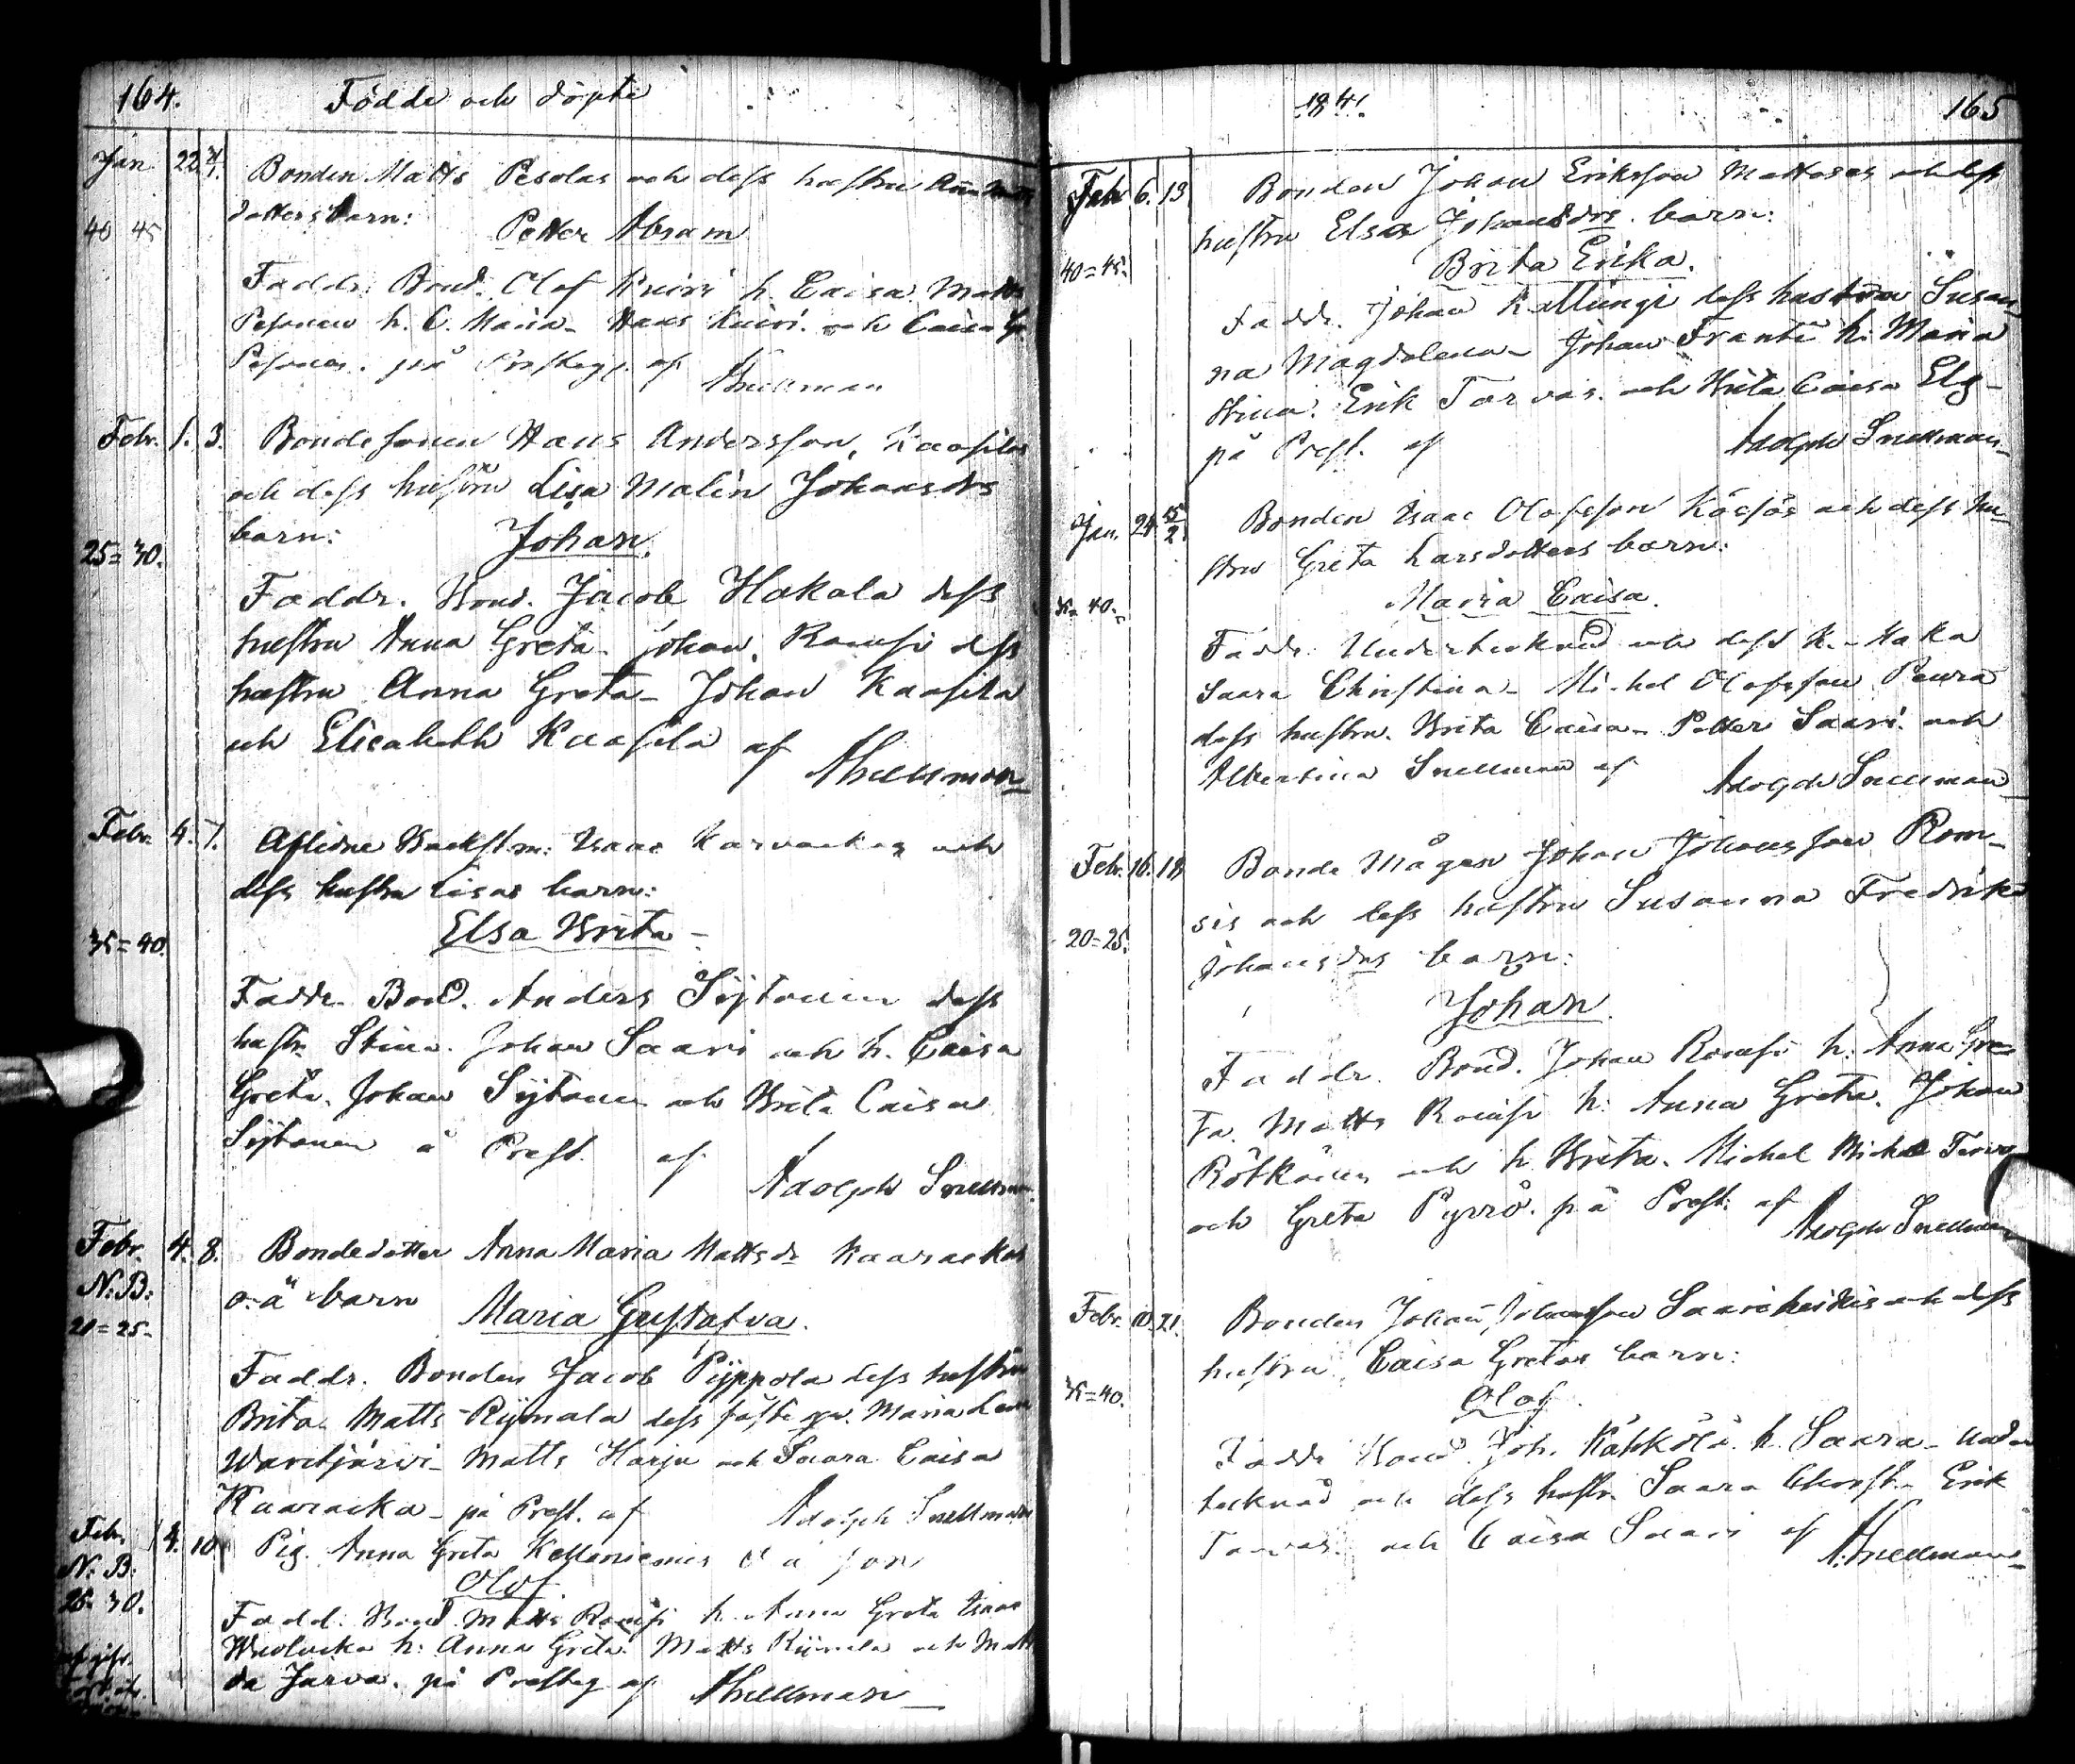 164. Födde och döpte
Jan. 22 31/1. Bonden Matts Pesolas och dess hustru Anna Matts
dotters barn: Petter Abram
40 45
Faddr. Bond. Olof Kuivi h. Caisa. Matts
Pesonen h. C. Maria - Hans Kuivi. och Caisa Gr.
Pesonen. på Prestegg. af ASnellman
Febr. 1. 3. Bondesonen Hans Andersson, Kaasilas
och dess hustru Lisa Malin Johansdrs
barn: Johan.
25=30.
Faddr. Bond. Jacob Hakala dess
hustru Anna Greta - Johan. Romsi dess
hustru Anna Greta - Johan Kaasila
och Elisabeth Kaasila af ASnellman
Febr. 4. 7. Aflidne Backstm: Isaac Karvackas och
dess hustru Lisas barn:
Elsa Brita -
35=40.
Faddr. Bond. Anders Sÿtonen dess
hustr. Stina. Johan Saari och h. Caisa
Greta. Johan Sÿtonen och Brita Caisa
Sÿtonen å Prest. af Adolph Snellman.
Febr. 4. 8. Bondedotter Anna Maria Mattsdr Kaarackas
N:B: o: ä barn Maria Gustafva.
20=25.
Faddr. Bonden Jacob Pÿppola dess hustru
Brita. Matts Rÿmala dess fäste qv. Maria Lena
Waretjärvi - Matts Harju och Saara Caisa
Kaaracka - på Prest. af Adolph Snellman
Febr. 4. 10. Pig. Anna Greta Kellaniemis o ä son
N. B. Olof
25=30.
Fadd. Bond. Matts Romsi h. Anna Greta Isaac
h: Anna Greta. Matts Riimala och
da Jarva. på Presteg af ASnellman
1841. 165
Febr 6. 13 Bonden Johan Eriksson Mattases och dess
hustru Elsa Johansdrs. barn:
40=45. Brita Erika.
Faddr. Johan Kallungi dess hustru Susan
na Magdalena - Johan Franti h. Maria
Stina. Erik Tarvas. och Brita Caisa Elg -
på Prest. af Adolph Snellman
Jan. 24. 15/2. Bonden Isaac Olofsson Köesös och dess hu
stru Greta Larsdotters barn:
35=40. Maria Caisa.
Faddr. Undertecknad och dess k. Maka
Saara Christina - Michel Olofsson Peura
dess hustru. Brita Caisa - Petter Saari. och
Albertina Snellman af Adolph Snellman
Febr. 16. 18 Bonde Mågen Johan Johansson Rom-
sis och dess hustru Susanna Fredrika
20=25. Johansdrs barn:
Johan.
Faddr. Bond. Johan Romsi h. Anna Gre
ta. Matts Romsi h: Anna Greta. Johan
Rötkönen och h. Brita. Michel Michel
och Greta Pyrrö. på Prest: af Adolph Snellman
Febr. 10. 21. Bonden Johan Johansson Saarikoskis och dess
hustru Caisa Gretas barn:
35=40. Olof
Faddr Bond. Joh. Käkkölä. h. Saara - Under
tecknad och dess hustr. Saara Christ. Erik
Tarvas. och Caisa Saari af A. Snellman